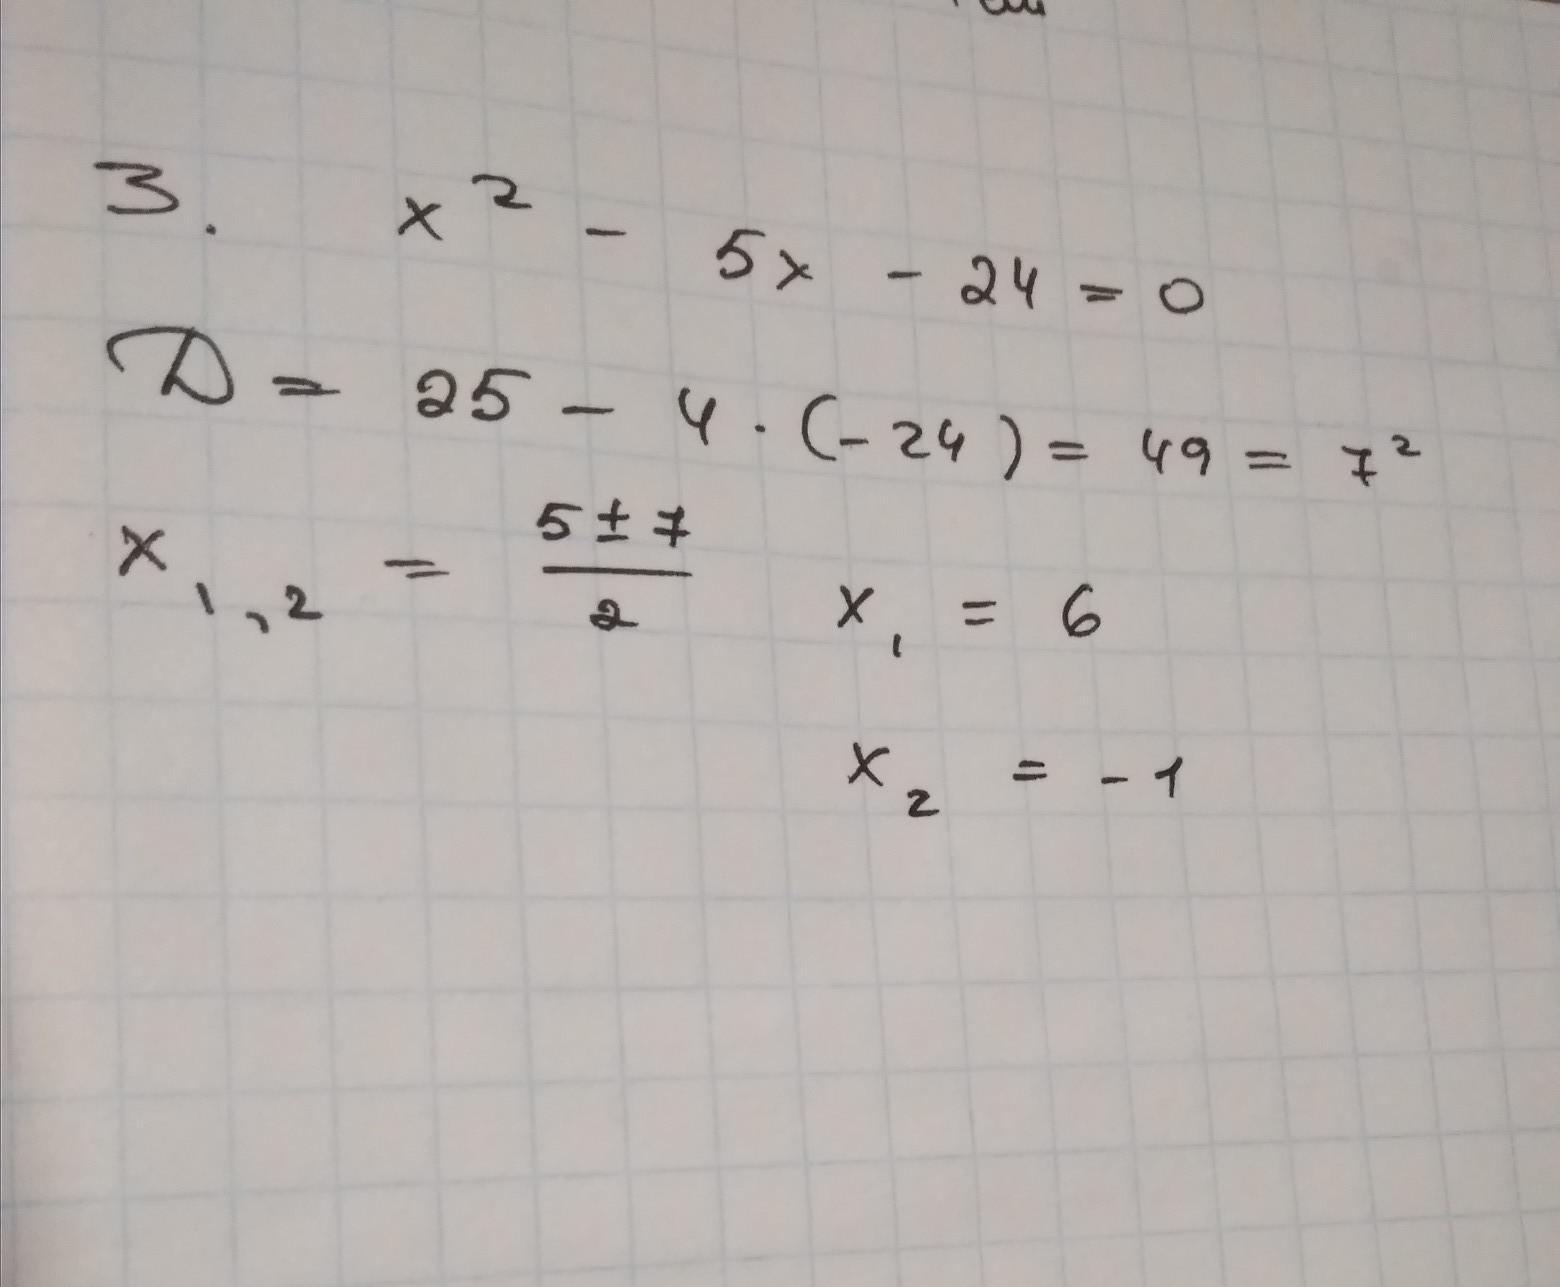 3. x² - 5x - 24 = 0
D = 25 - 4 · (-24) = 49 = 7²
x₁,₂ = (5 ± 7)/2 x₁ = 6
x₂ = -1